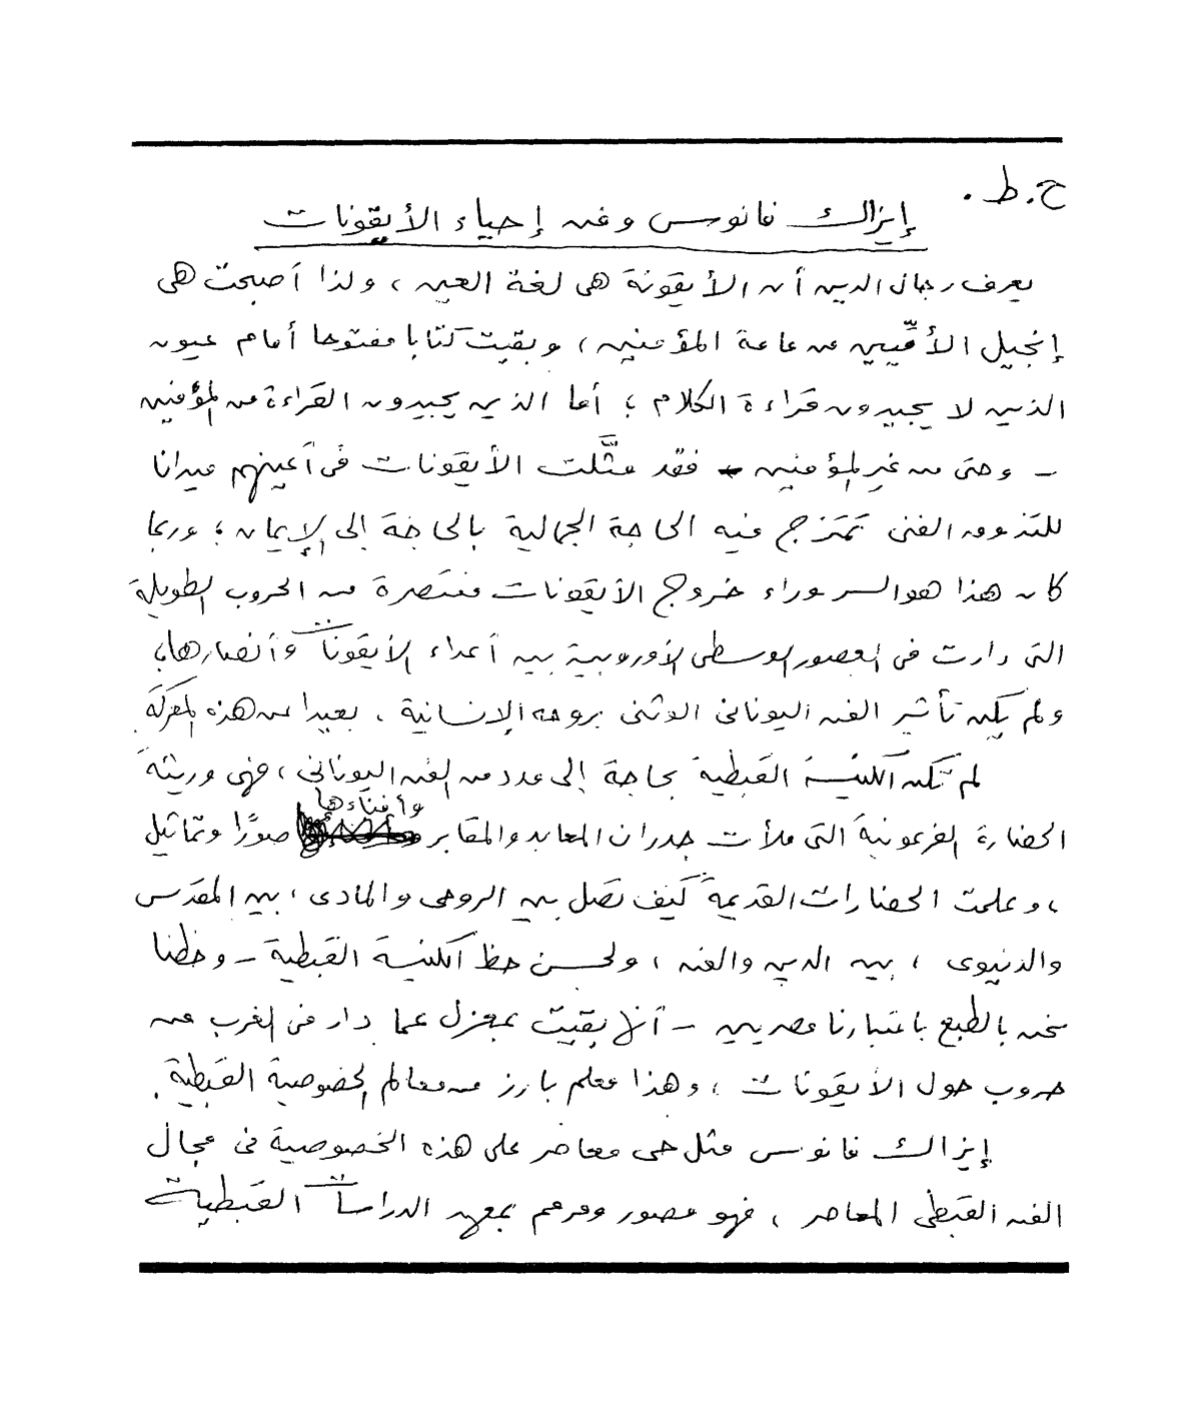 ح. ط.
إيزاك فانوس وفن إحياء الأيقونات
يعرف رجال الدين أن الأيقونة هى لغة العين ، ولذا أصبحت هى
إنجيل الأمِّيين من عامة المؤمنين ، وبقيت كتابا مفتوحا أمام عيون
الذين لا يجيدون قراءة الكلام ؛ أما الذين يجيدون القراءة من المؤمنين
– وحتى من غير المؤمنين – فقد مثَّلت الأيقونات فى أعينهم ميدانا
للتذوق الفنى تمتزج فيه الحاجة الجمالية بالحاجة إلى الإيمان ؛ وربما
كان هذا هو السر وراء خروج الأيقونات منتصرة من الحروب الطويلة
التى دارت فى العصور الوسطى الأوروبية بين أعداء الأيقونات وأنصارها ،
ولم يكن تأثير الفن اليونانى الوثنى بروحه الإنسانية ، بعيدا عن هذه المعركة .
لم تكن الكنيسة القبطية بحاجة إلى مدد من الفن اليونانى ، فهى وريثة
الحضارة الفرعونية التى ملأت جدران المعابد والمقابر وأفناءها صورًا وتماثيل
، وعلمت الحضارات القديمة كيف تصل بين الروحى والمادى ، بين المقدس
والدنيوى ، بين الدين والفن ، ولحسن حظ الكنيسة القبطية – وحظنا
نحن بالطبع باعتبارنا مصريين – أنها بقيت بمعزل عما دار فى الغرب من
حروب حول الأيقونات ، وهذا معلم بارز من معالم الخصوصية القبطية .
إيزاك فانوس مثل حى معاصر على هذه الخصوصية فى مجال
الفن القبطى المعاصر ، فهو مصور ومرمم بمعهد الدراسات القبطية